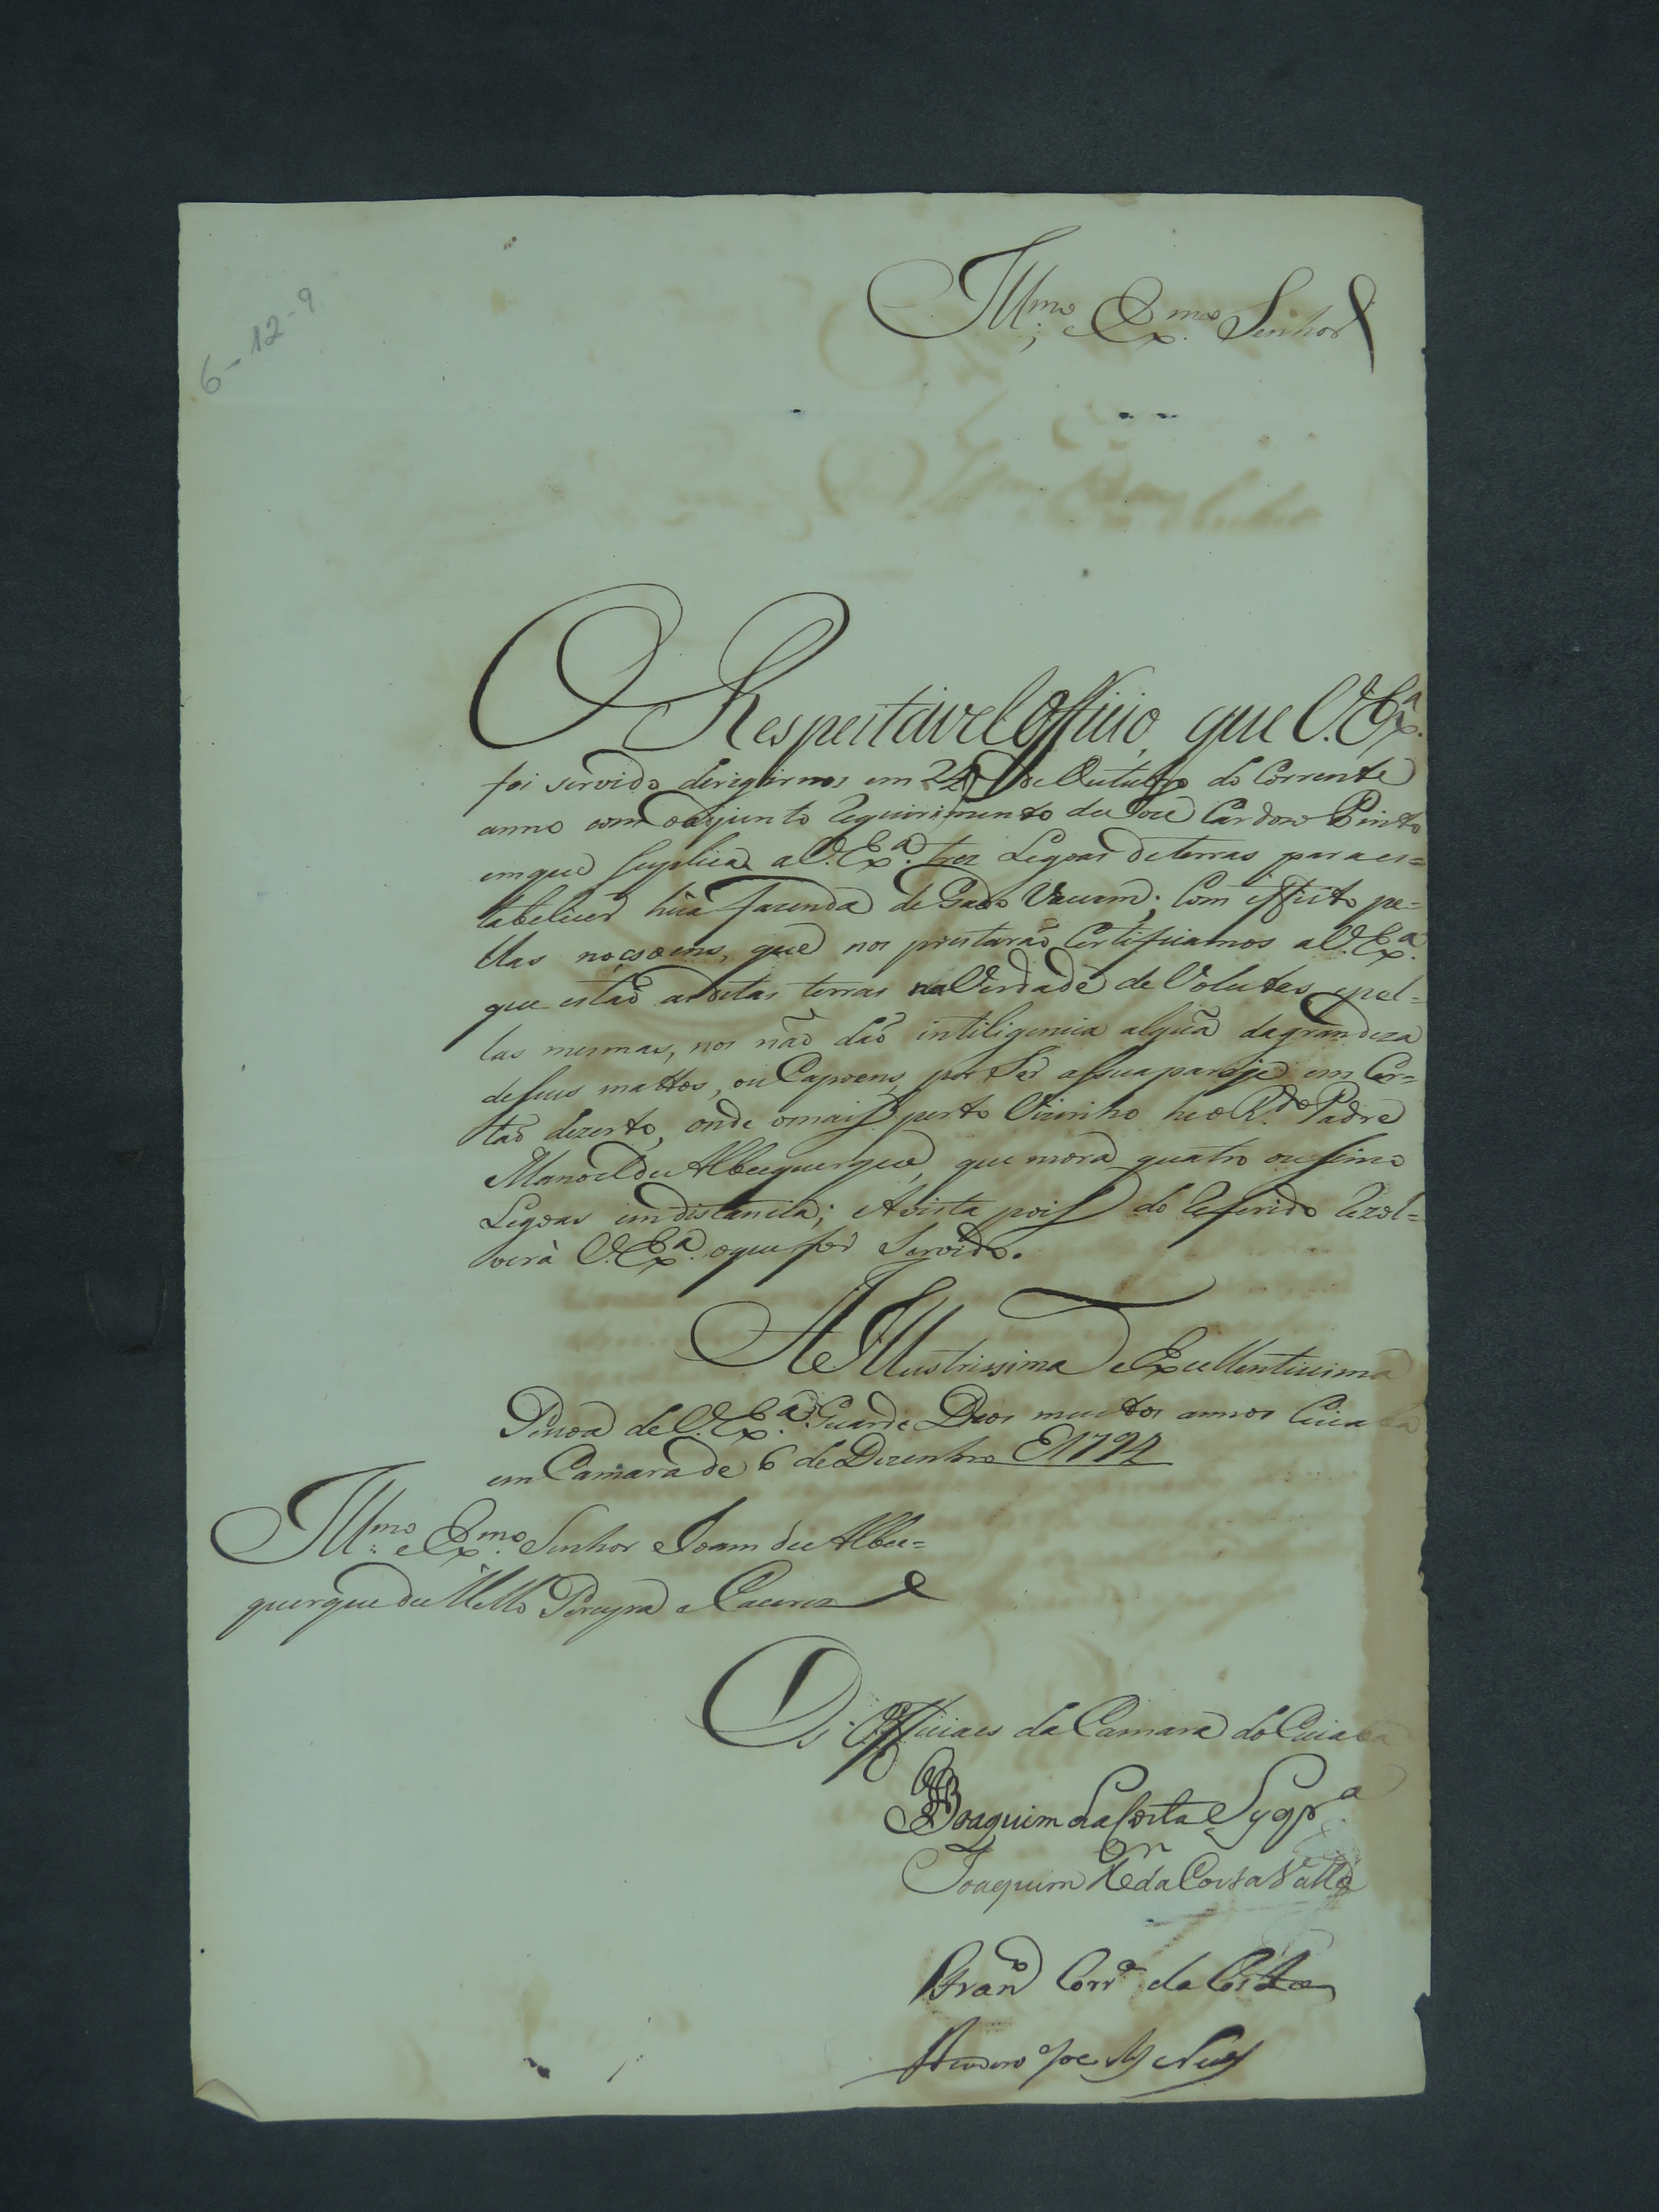 6-12-9
Illmo; e Exmo. Senhor
O Respeitavel Officio, que V. Exa.
foi servido dirigirnos em 24 de Outubro do Corrente
anno com oadjunto requirimento de Joze Cardozo Pinto
emque suplica a V. Exa. trez Legoas deterras para es=
tabelicer hũa fazenda de Gado Vacum; Com effeito pe=
llas noçoens, que nos prestarão Certificamos a V. Exa.
que estão asditas terras na Verdade de Volutas, epel=
las mesmas, nos não dão intiligencia algũa dagrandeza
deseus mattos, ou Capoens, por Ser assua paraje em Cer=
tão dezerto, onde omais perto Vizinho he o Rdo. Padre
Manoel de Albuquerque, que mora quatro ou sinco
Legoas emdistancia; Avista pois do referido rezol=
verà V. Exa. oque for Servido.
A Illustrissima e Excellentissima
Pessoa de V. Exa. Guarde Deos muitos annos Cuiaba
em Camara de 6 de Dezembro E 1792
Illmo: e Exmo. Senhor Joam de Albu=
querque de Mello Pereyra e Caceres
Os Officiaes da Camara do Cuiaba
Joaquim da Costa Syqra.
Joaquim da Costa Valle
Corra. da Costa
Joe